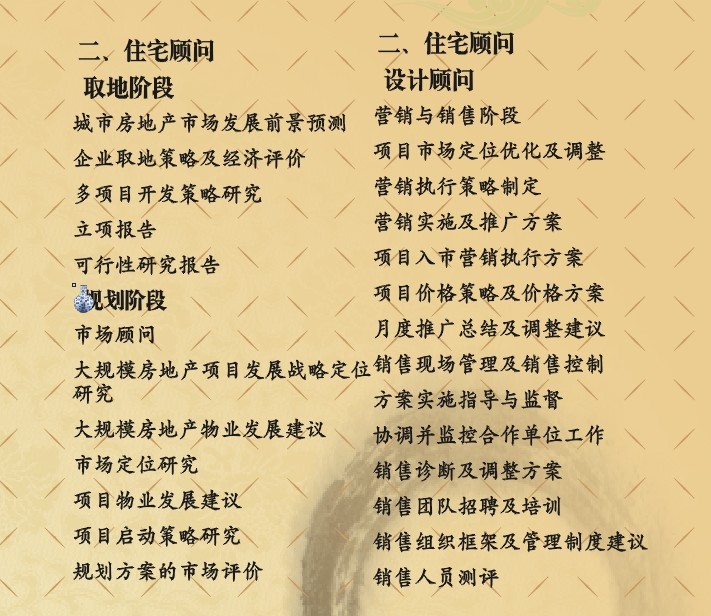 二、住宅顾问
取地阶段
城市房地产市场发展前景预测
企业取地策略及经济评价
多项目开发策略研究
立项报告
可行性研究报告
规划阶段
市场顾问
大规模房地产项目发展战略定位
研究
大规模房地产物业发展建议
市场定位研究
项目物业发展建议
项目启动策略研究
规划方案的市场评价
二、住宅顾问
设计顾问
营销与销售阶段
项目市场定位优化及调整
营销执行策略制定
营销实施及推广方案
项目入市营销执行方案
项目价格策略及价格方案
月度推广总结及调整建议
销售现场管理及销售控制
方案实施指导与监督
协调并监控合作单位工作
销售诊断及调整方案
销售团队招聘及培训
销售组织框架及管理制度建议
销售人员测评